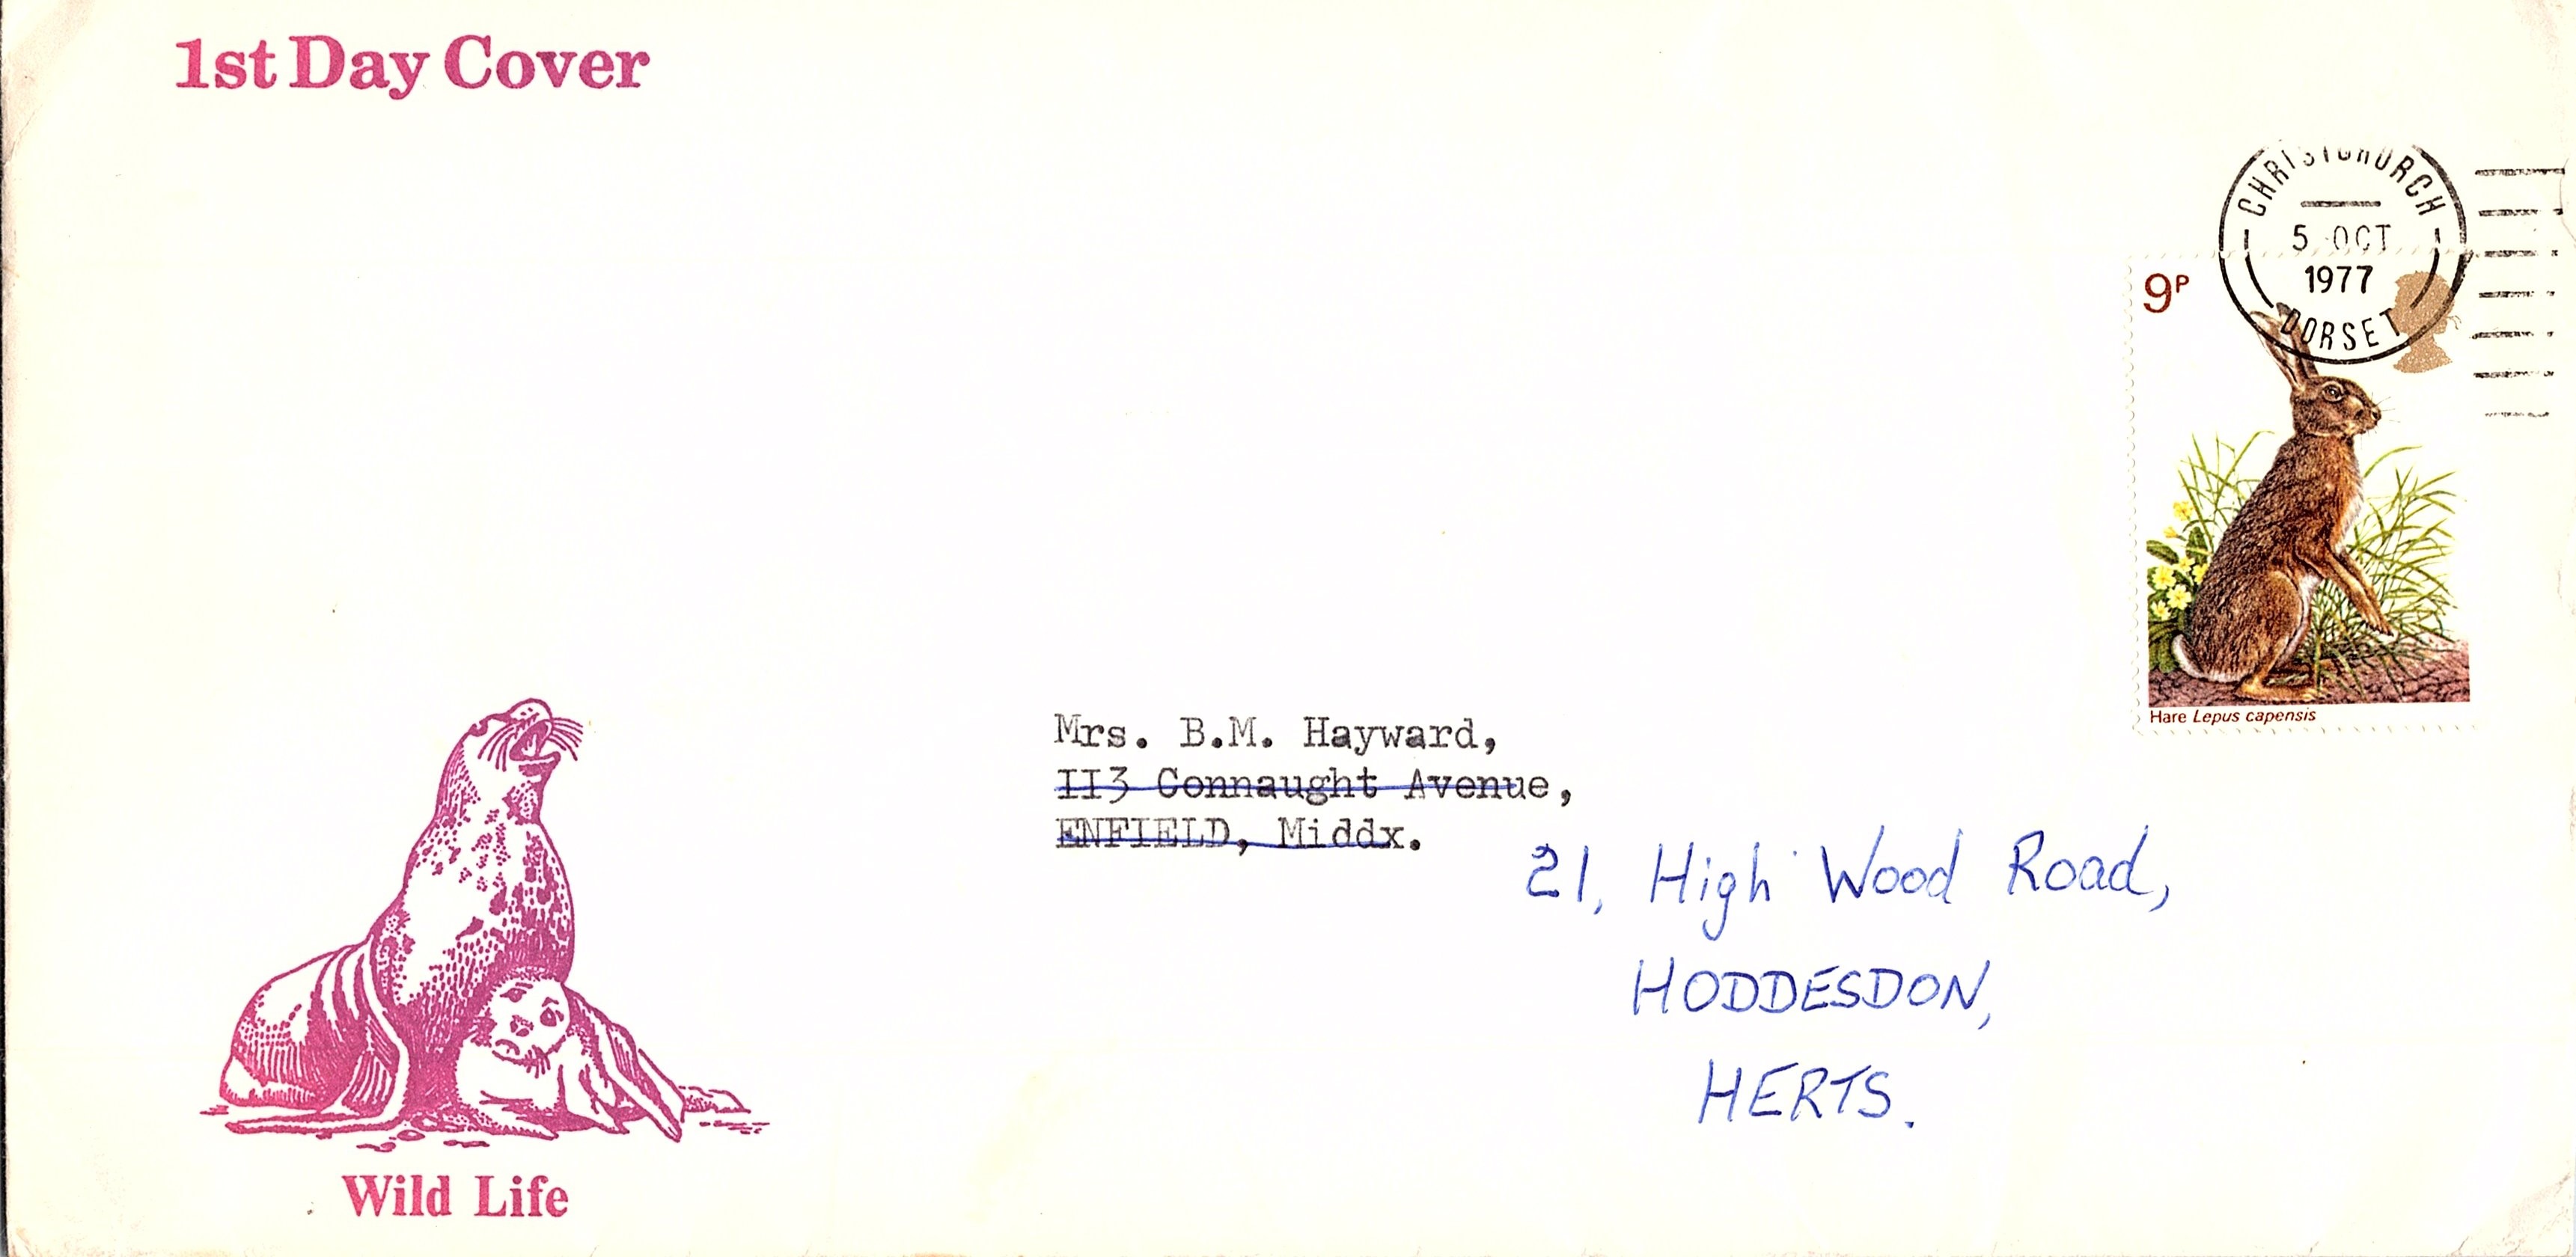 1st Day Cover
CHRISTCHURCH
5 OCT
1977
DORSET
9P
Hare Lepus capensis
Mrs. B.M. Hayward,
II3 Connaught Avenue,
ENFIELD, Middx.
21, High Wood Road,
HODDESDON,
HERTS.
Wild Life